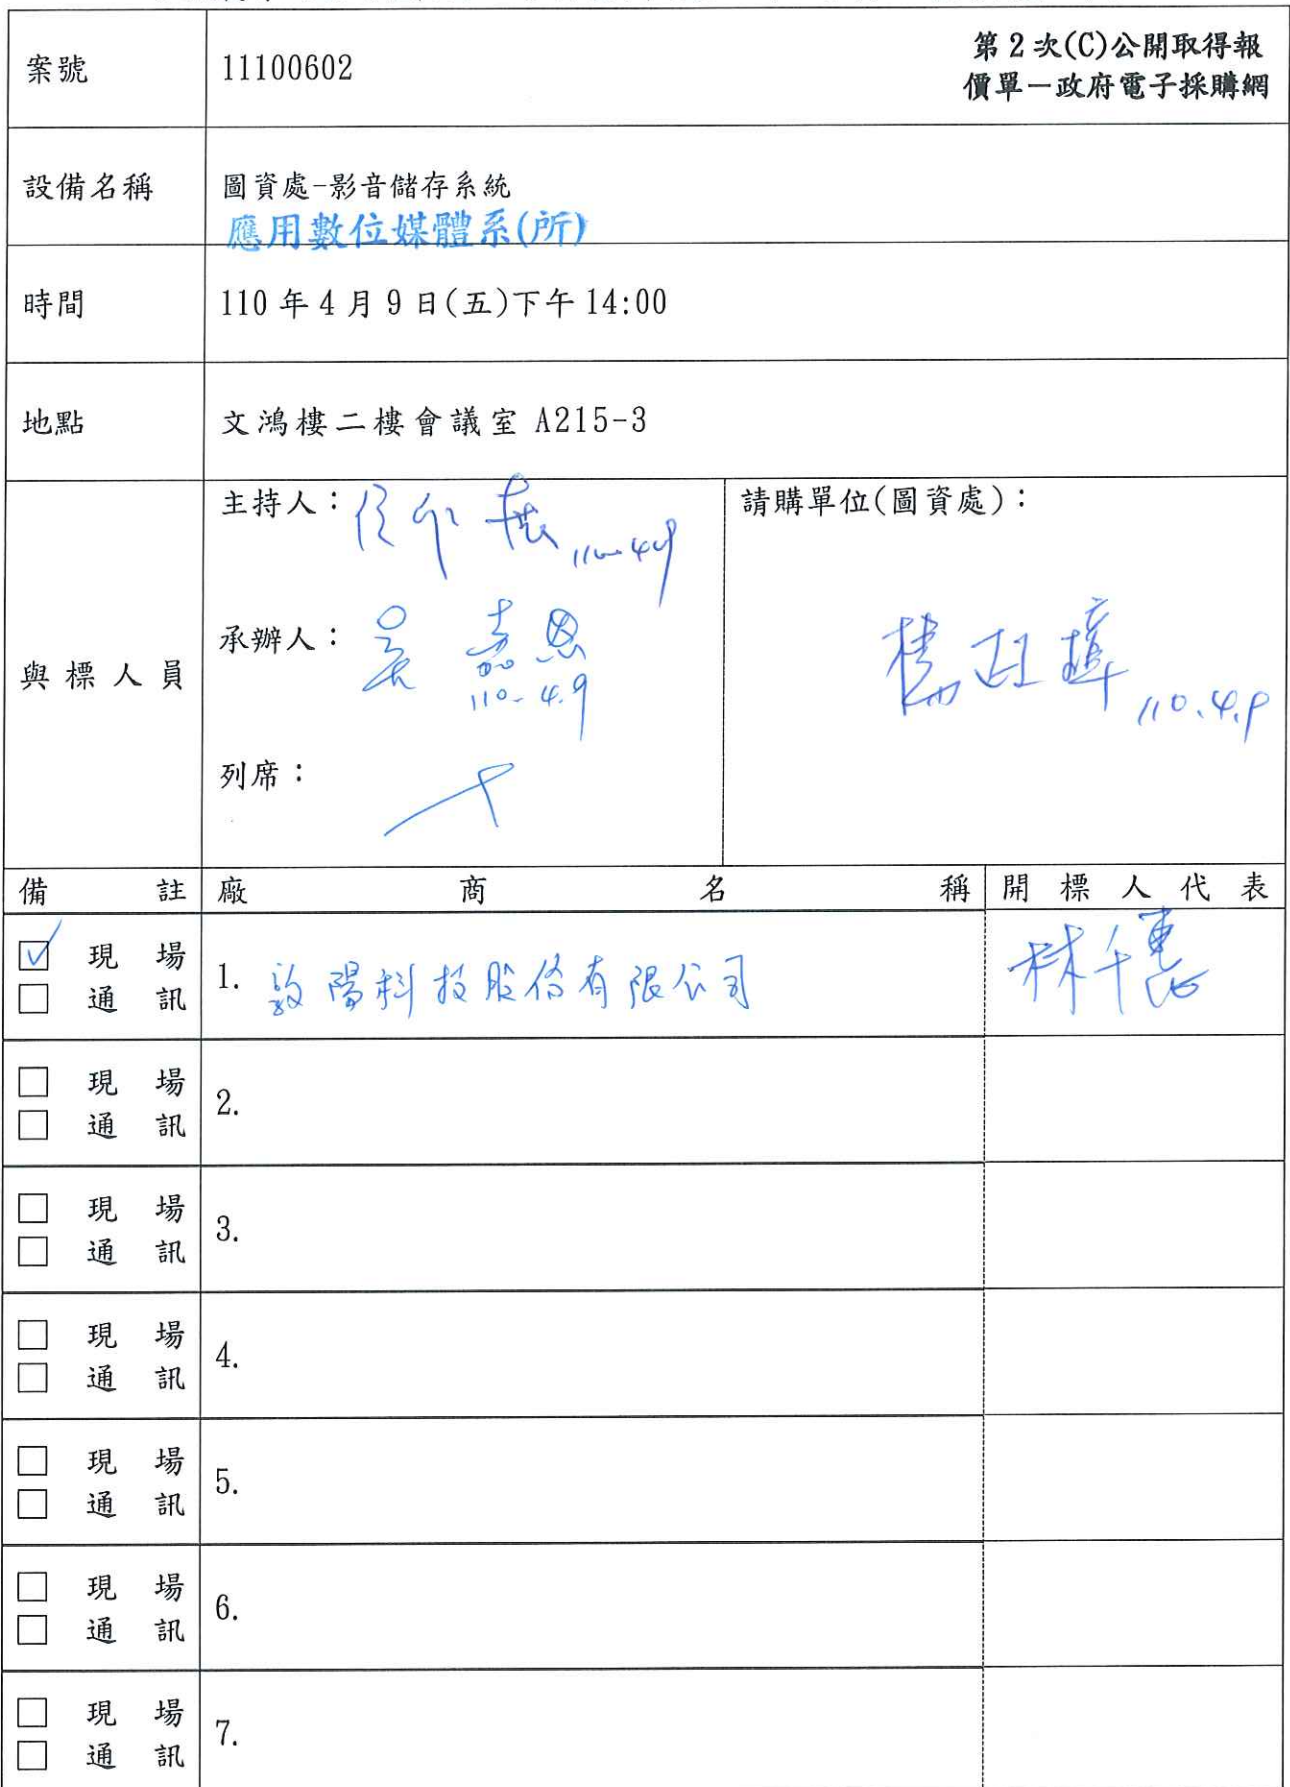 案號 11100602 第2次(C)公開取得報
價單－政府電子採購網
設備名稱 圖資處-影音儲存系統
應用數位媒體系(所)
時間 110年4月9日(五)下午14:00
地點 文鴻樓二樓會議室 A215-3
與標人員
主持人：
請購單位(圖資處)：
承辦人：吳嘉恩
110.4.9
110.4.9
列席：
備註 廠商名稱 開標人代表
☑ 現場
☐ 通訊
1. 敦陽科技股份有限公司
林千惠
☐ 現場
☐ 通訊
2.
☐ 現場
☐ 通訊
3.
☐ 現場
☐ 通訊
4.
☐ 現場
☐ 通訊
5.
☐ 現場
☐ 通訊
6.
☐ 現場
☐ 通訊
7.